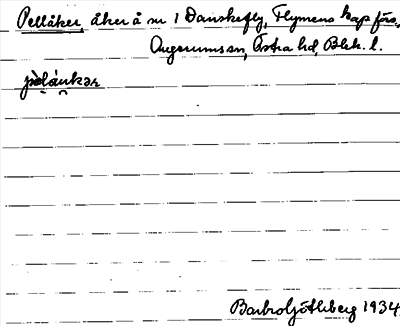 Pellåker, åker å nr 1 Danskefly, Flymens kapförs.,
Augerums sn, Östra hd, Blek. l.
pèlǻukər
Barbro Götliberg 1934